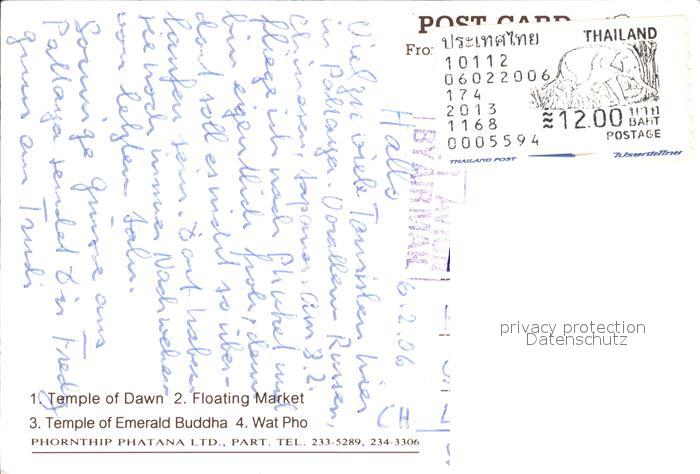 POST CARD
From
ประเทศไทย
THAILAND
10112
06022006
174
2013
1168
0005594
≈12.00 บาท BAHT
POSTAGE
THAILAND POST
ไปรษณีย์ไทย
PAR AVION
BY AIR MAIL
6.2.06
Hallo
Viel zu viele Touristen hier
in Pattaya. Vorallem Russen,
Chinesen, Japaner. Am 8.2.
fliege ich nach Phuket und
bin eigentlich froh, denn
dort soll es nicht so über-
laufen sein. Dort haben
sie noch immer Nachwehen
vom letzten Jahr.
Sonnige Grüsse aus
Pattaya sendet Dir Fredy
gruss an Trudi
CH
privacy protection
Datenschutz
1. Temple of Dawn 2. Floating Market
3. Temple of Emerald Buddha 4. Wat Pho
PHORNTHIP PHATANA LTD., PART. TEL. 233-5289, 234-3306